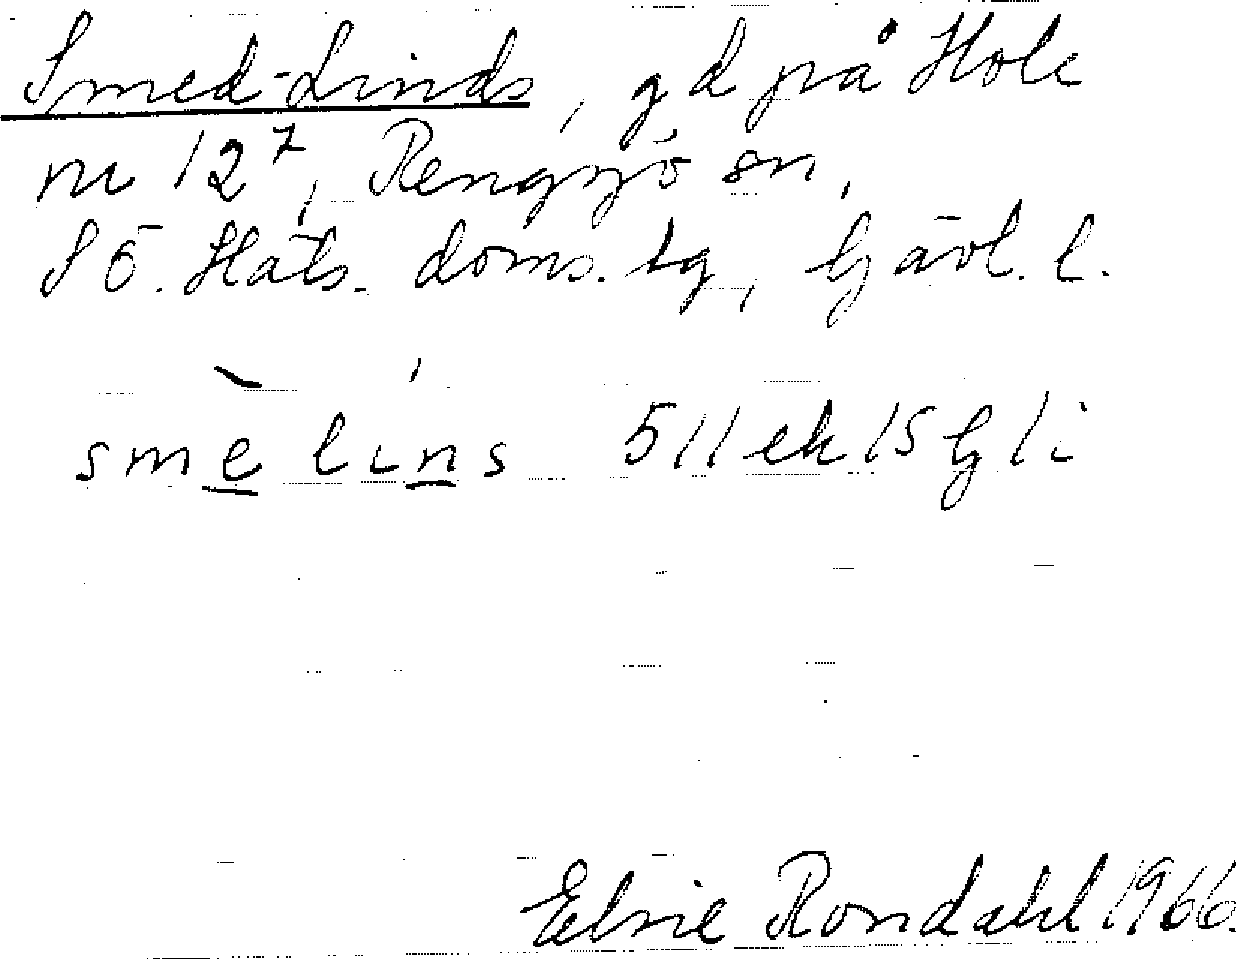 Smed-Linds, gd på Hole
nr 12⁷, Rengsjö sn,
Sö. Häls. doms. tg, Gävl. l.
smè líns 511 ek 15 G 1 i
Elsie Rondahl 1966.